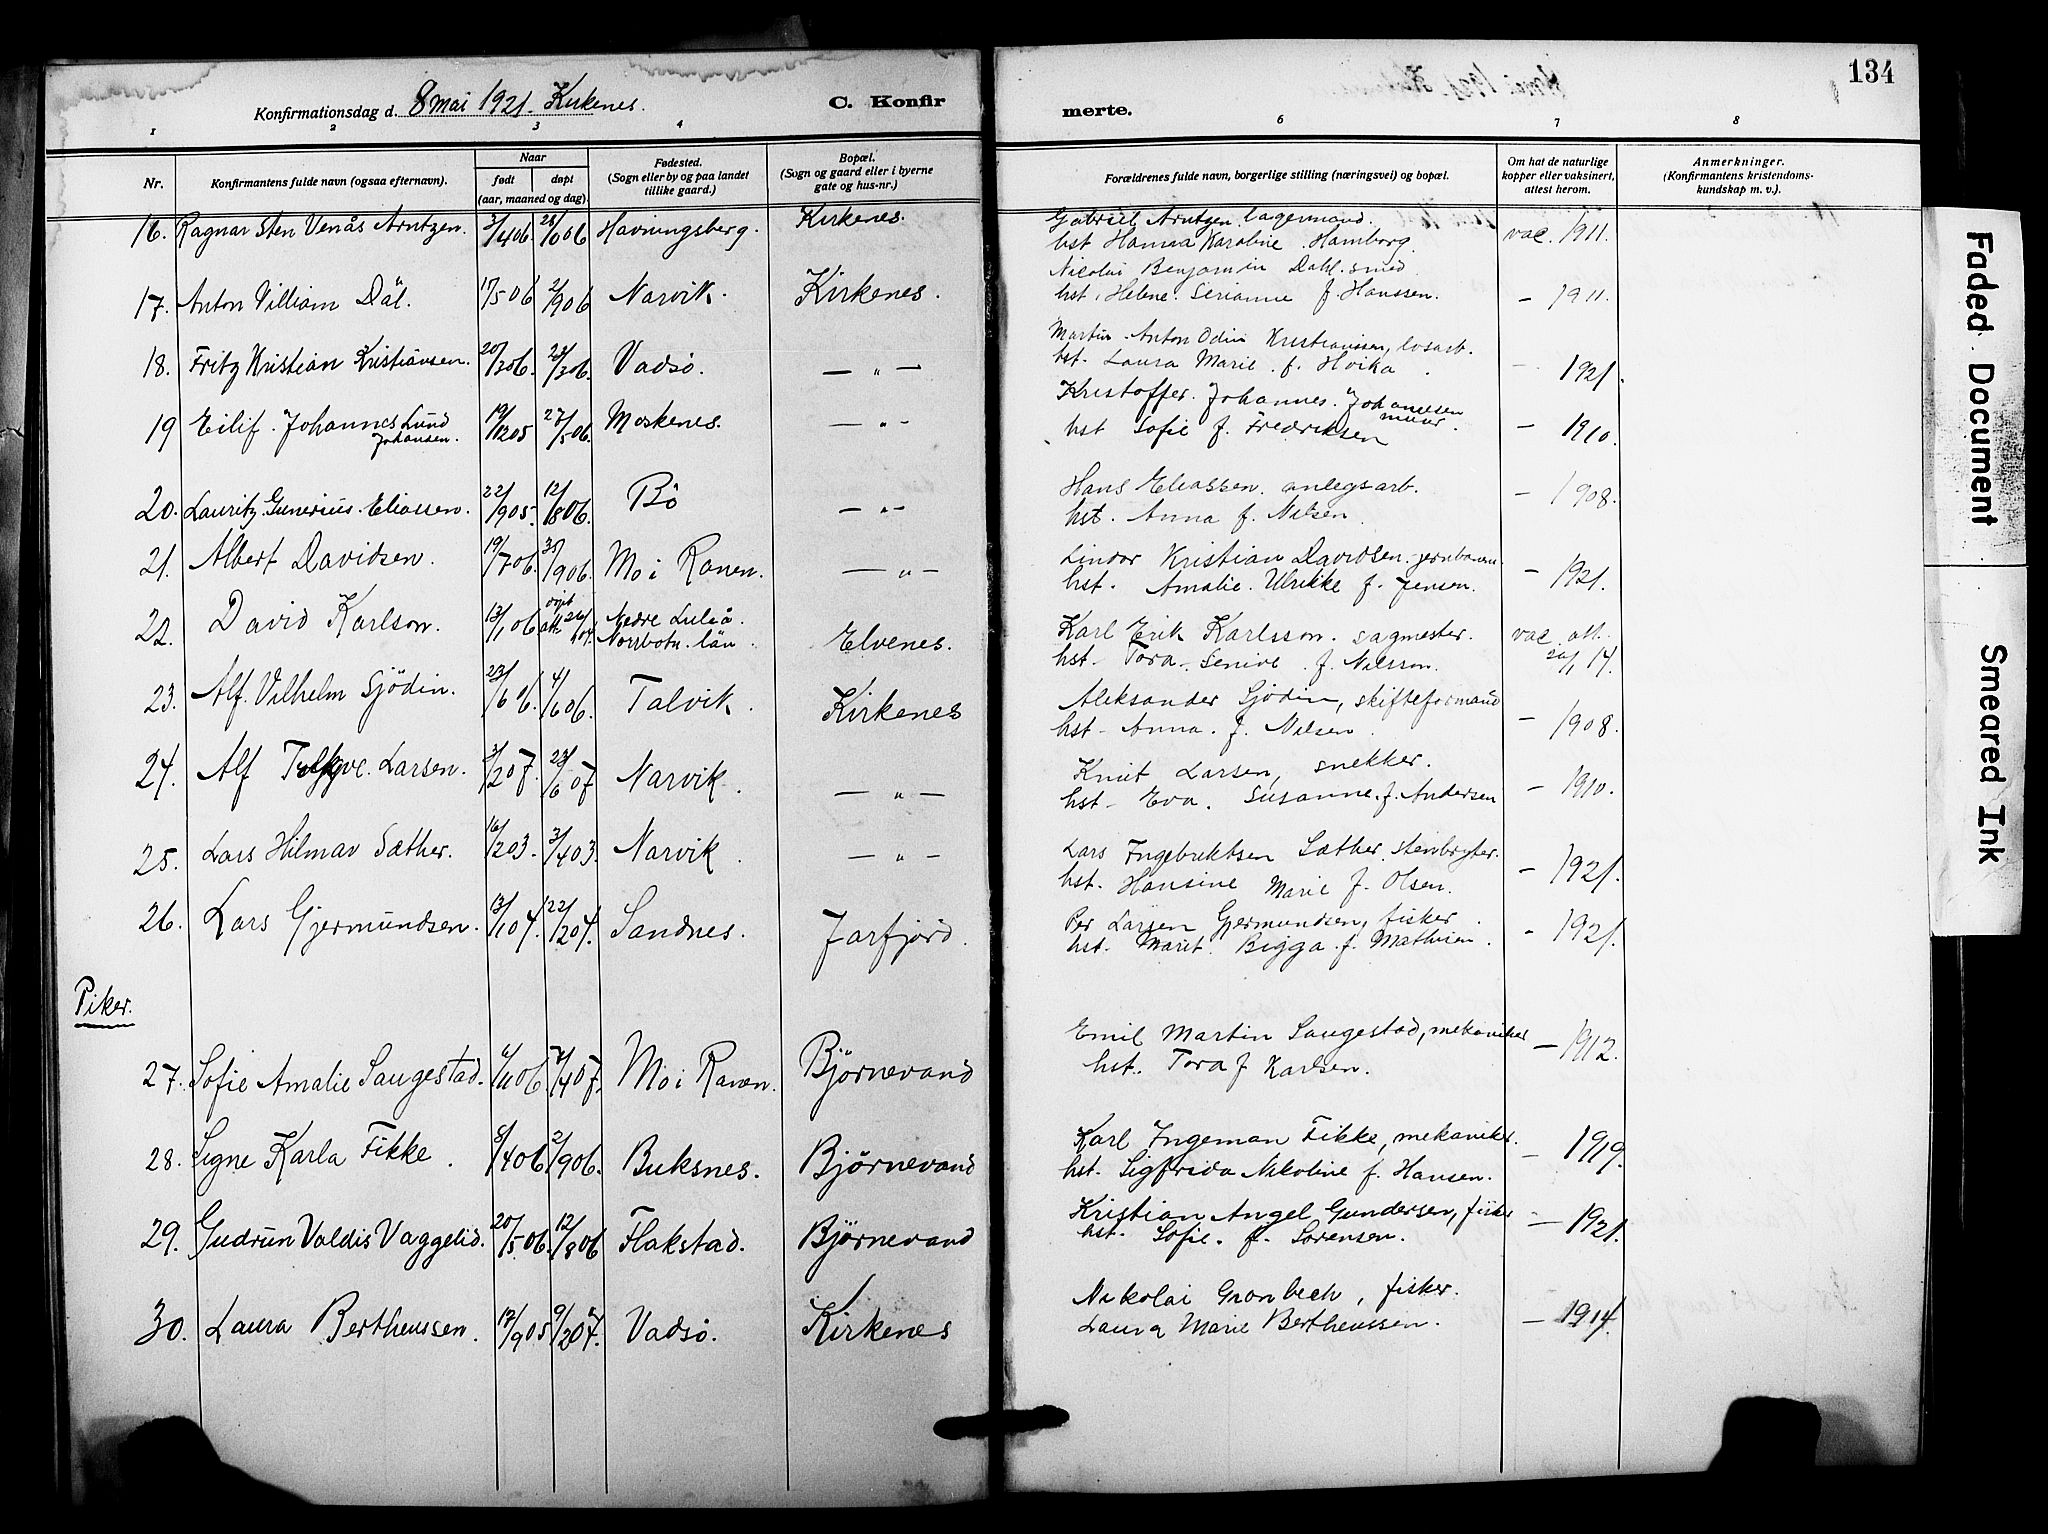 134
Konfirmationsdag d. 8 mai 1921. Kirkenes.
C. Konfir
merte.
1 2 3 4
6 7 8
Nr.
Konfirmantens fulde navn (ogsaa efternavn).
Naar
født
døpt
(aar, maaned og dag)
Fødested.
(Sogn eller by og paa landet
tillike gaard.)
Bopæl.
(Sogn og gaard eller i byerne
gate og hus-nr.)
Forældrenes fulde navn, borgerlige stilling (næringsvei) og bopæl.
Om hat de naturlige
kopper eller vaksinert,
attest herom.
Anmerkninger.
(Konfirmantens kristendoms-
kundskap m. v.)
16. Ragnar Sten Venås Arntzen. 3/4 06. 28/10 06 Havningsberg. Kirkenes. Gabriel Arntzen lagermand.
hst Hanna Karoline Hamborg. vac. 1911.
Nicolai Benjamin Dahl. smed.
17. Anton Villiam Dål. 17/5 06 2/9 06 Narvik. Kirkenes. hst. Helene Serianne f. Hanssen. — 1911.
Martin Anton Odin Kristianssen, løsarb.
18. Fritz Kristian Kristiansen. 20/3 06. 28/3 06. Vadsö. — „ — hst. Laura Marie f. Hvika. — 1921.
Kristoffer Johannes Johanesen
minør.
19 Eilif Johannes Lund
Johansen. 19/12 05 27/5 06. Moskenes. — „ — hst Sofie f. Fredriksen — 1910.
20. Lauritz Gunerius Eliassen. 22/9 05. 12/8 06. Bö — „ — Hans Eliassen. anlegsarb.
hst. Anna f. Nilsen. — 1908.
21. Albert Davidsen. 19/7 06. 30/9 06. Mo i Ranen. — „ — Lindor Kristian Davidsen
hst. Amalie Ulrikke f. Jensen. — 1921.
22. David Karlson. 13/1 06 döpt
att. Nedre Luleå
Norrbotn. län. Elvenes. Karl Erik Karlsson. sagmester.
hst. Tora f. Nilsson. vac att.
20/1 14.
23. Alf. Vilhelm Sjödin. 23/ 06. 4/6 06. Talvik. Kirkenes Aleksander Sjödin, skifteformand
hst. Anna. f. Nilsen. — 1908.
24. Alf Larsen. 3/2 07. 23/6 07 Narvik. — „ — Knut Larsen, snekker.
hst. Eva. Susanne. f. Andersen — 1910.
25. Lars Hilmar Sæther. 16/2 03. 3/4 03. Narvik. — „ — Lars Ingebriktsen Sæther, stenbryter.
hst. Hansine Marie f. Olsen. — 1921.
26. Lars Gjermundsen. 13/1 04. 22/2 04. Sandnes. Jarfjord. Per Larsen Gjermundsen, fisker.
hst. Marit Bigga f. Mathisen. - 1921.
Piker.
27. Sofie Amalie Saugestad. 6/11 06. 7/4 07. Mo i Ranen. Björnevand Emil Martin Saugestad, mekaniker
hst. Tora f Karlsen. — 1912.
28. Signe Karla Fikke. 8/4 06 2/9 06. Buksnes. Björnevand Karl Ingeman Fikke, mekanikr.
hst. Sigfrida Nikoline f. Hansen. — 1919.
29. Gudrun Valdis Vaggelid. 20/5 06. 12/8 06 Flakstad. Björnevand Kristian Angel Gundersen, fisker
hst. Sofie. f. Sörensen. — 1921.
30. Laura Bertheussen. 17/9 05 9/2 07. Vadsö. Kirkenes Nikolai Grønbech, fisker.
Laura Marie Bertheussen. — 1914.
Faded Document
Smeared Ink